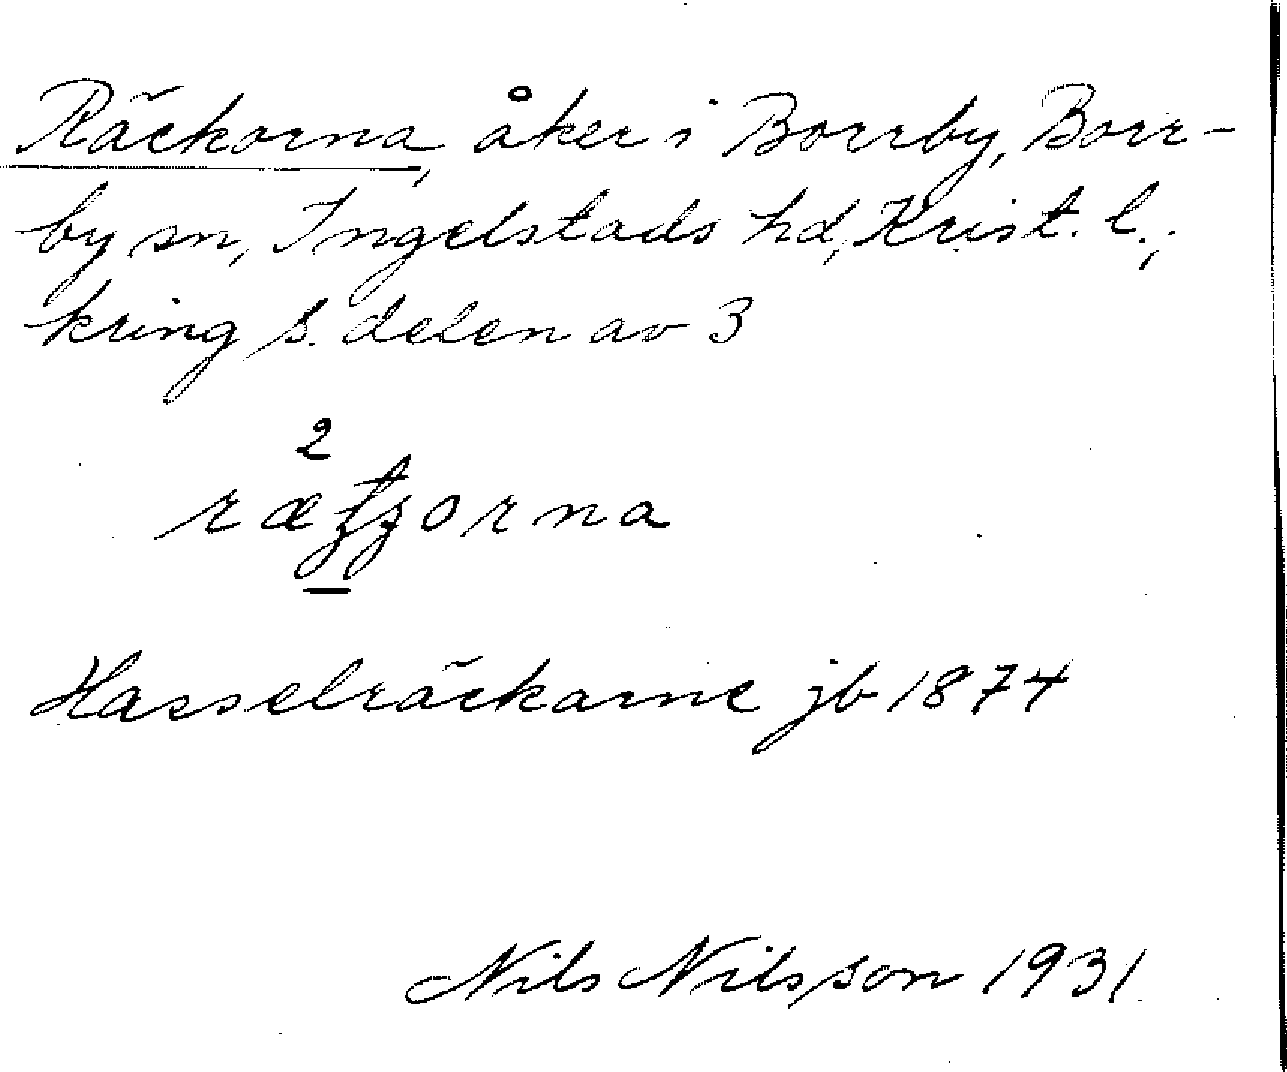 Räckorna, åker i Borrby, Borr-
by sn, Ingelstads hd, Krist. l.;
kring s. delen av 3
2
Hasselräckarne jb 1874
Nils Nilsson 1931